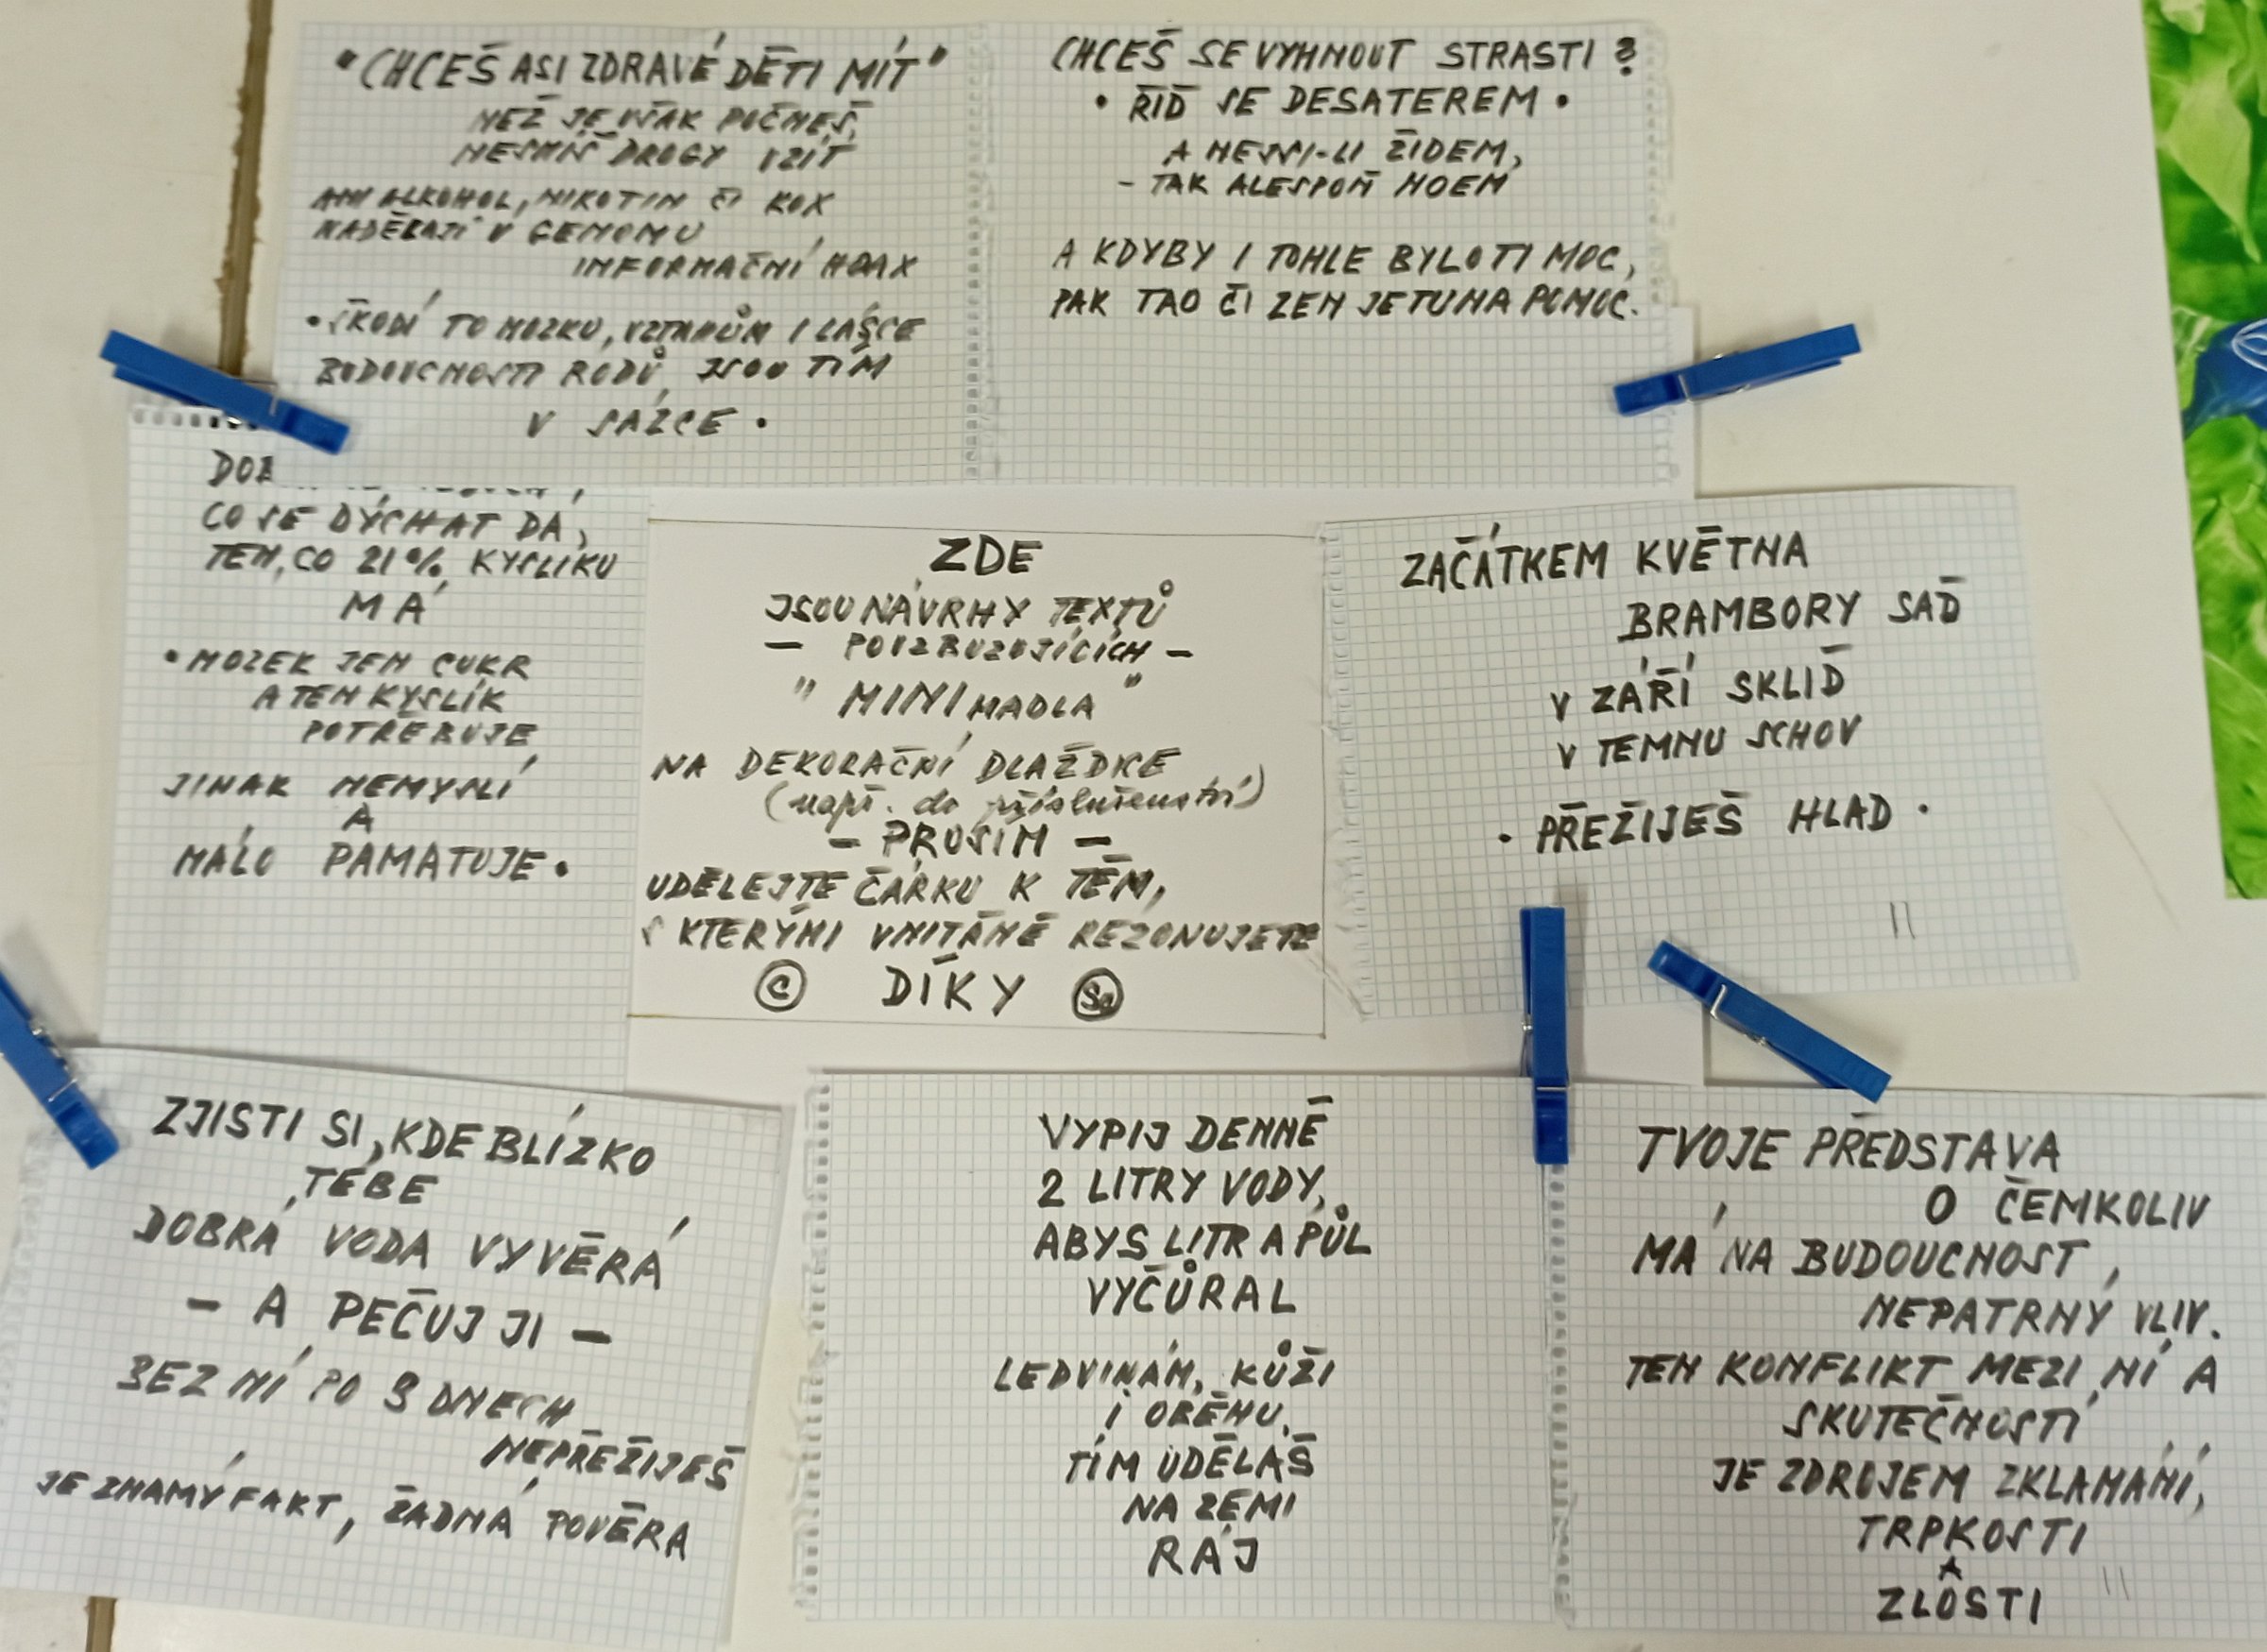 "CHCEŠ ASI ZDRAVÉ DĚTI MÍT"
NEŽ JE VŠAK POČNEŠ,
NESMÍŠ DROGY VZÍT
ANI ALKOHOL, NIKOTIN ČI KOX
NADĚLAJÍ V GENOMU
INFORMAČNÍ HOAX
• ŠKODÍ TO MOZKU, VZTAHŮM I LÁSCE
BUDOUCNOSTI RODŮ, JSOU TÍM
V SÁZCE •
CHCEŠ SE VYHNOUT STRASTI ?
• ŘIĎ SE DESATEREM •
A NEJSI-LI ŽIDEM,
- TAK ALESPOŇ NOEM
A KDYBY I TOHLE BYLO TI MOC,
PAK TAO ČI ZEN JE TU NA POMOC.
CO SE DÝCHAT DÁ,
TEN, CO 21% KYSLÍKU
MÁ
• MOZEK JEN CUKR
A TEN KYSLÍK
POTŘEBUJE
JINAK NEMYSLÍ
A
MÁLO PAMATUJE •
ZDE
JSOU NÁVRHY TEXTŮ
- POVZBUZUJÍCÍCH -
"MINI MADLA"
NA DEKORAČNÍ DLAŽDICE
(např. do příslušenství)
- PROSÍM -
UDĚLEJTE ČÁRKU K TĚM,
S KTERÝMI VNITŘNĚ REZONUJETE
© DÍKY
ZAČÁTKEM KVĚTNA
BRAMBORY SAĎ
V ZÁŘÍ SKLIĎ
V TEMNU SCHOV
• PŘEŽIJEŠ HLAD •
||
ZJISTI SI, KDE BLÍZKO
TEBE
DOBRÁ VODA VYVĚRÁ
- A PEČUJ JI -
BEZ NÍ PO 3 DNECH
NEPŘEŽIJEŠ
JE ZNÁMÝ FAKT, ŽÁDNÁ POVĚRA
VYPIJ DENNĚ
2 LITRY VODY,
ABYS LITR A PŮL
VYČŮRAL
LEDVINÁM, KŮŽI
I OBĚHU,
TÍM UDĚLÁŠ
NA ZEMI
RÁJ
TVOJE PŘEDSTAVA
O ČEMKOLIV
MÁ NA BUDOUCNOST,
NEPATRNÝ VLIV.
TEN KONFLIKT MEZI NÍ A
SKUTEČNOSTÍ
JE ZDROJEM ZKLAMÁNÍ,
TRPKOSTI
A
ZLOSTI
||